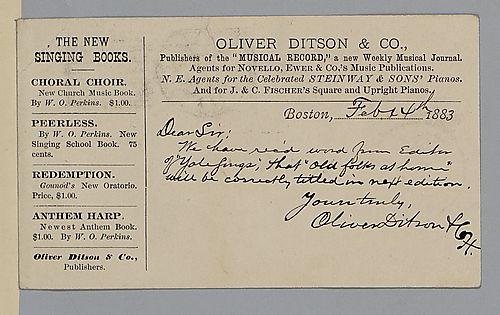 THE NEW
SINGING BOOKS.
CHORAL CHOIR.
New Church Music Book.
By W. O. Perkins. $1.00.
PEERLESS.
By W. O. Perkins. New
Singing School Book. 75
cents.
REDEMPTION.
Gounod's New Oratorio.
Price, $1.00.
ANTHEM HARP.
Newest Anthem Book.
$1.00. By W. O. Perkins.
Oliver Ditson & Co.,
Publishers.
OLIVER DITSON & CO.,
Publishers of the "MUSICAL RECORD," a new Weekly Musical Journal.
Agents for NOVELLO, EWER & CO.'s Music Publications.
N. E. Agents for the Celebrated STEINWAY & SONS' Pianos.
And for J. & C. FISCHER'S Square and Upright Pianos.
Boston, Feb 14th 1883
Dear Sir;
We have rec'd word from Editor
of "Yale Songs," that "Old folks at home"
will be correctly titled in next edition.
Yours truly,
Oliver Ditson & Co
H.